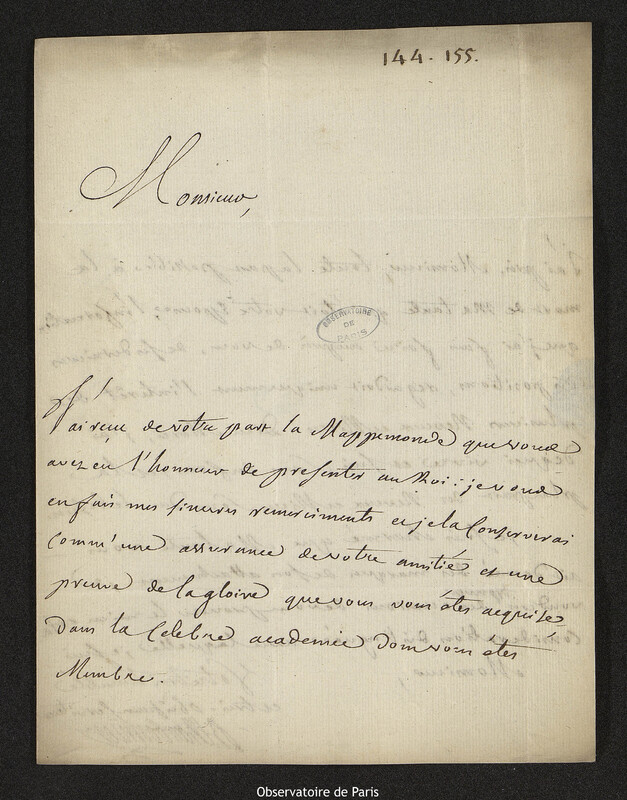 144. 155.
Monsieur,
OBSERVATOIRE
DE
PARIS
J'ai reçu de votre part la Mappemonde que vous
avez eu l'honneur de presenter au Roi : je vous
en fais mes sinceres remerciments et je la Conserverai
Comm'une assurance de votre amitié et une
preuve de la gloire que vous vous étes acquise
Dans la Célebre academie dont vous étes
Membre.
Observatoire de Paris